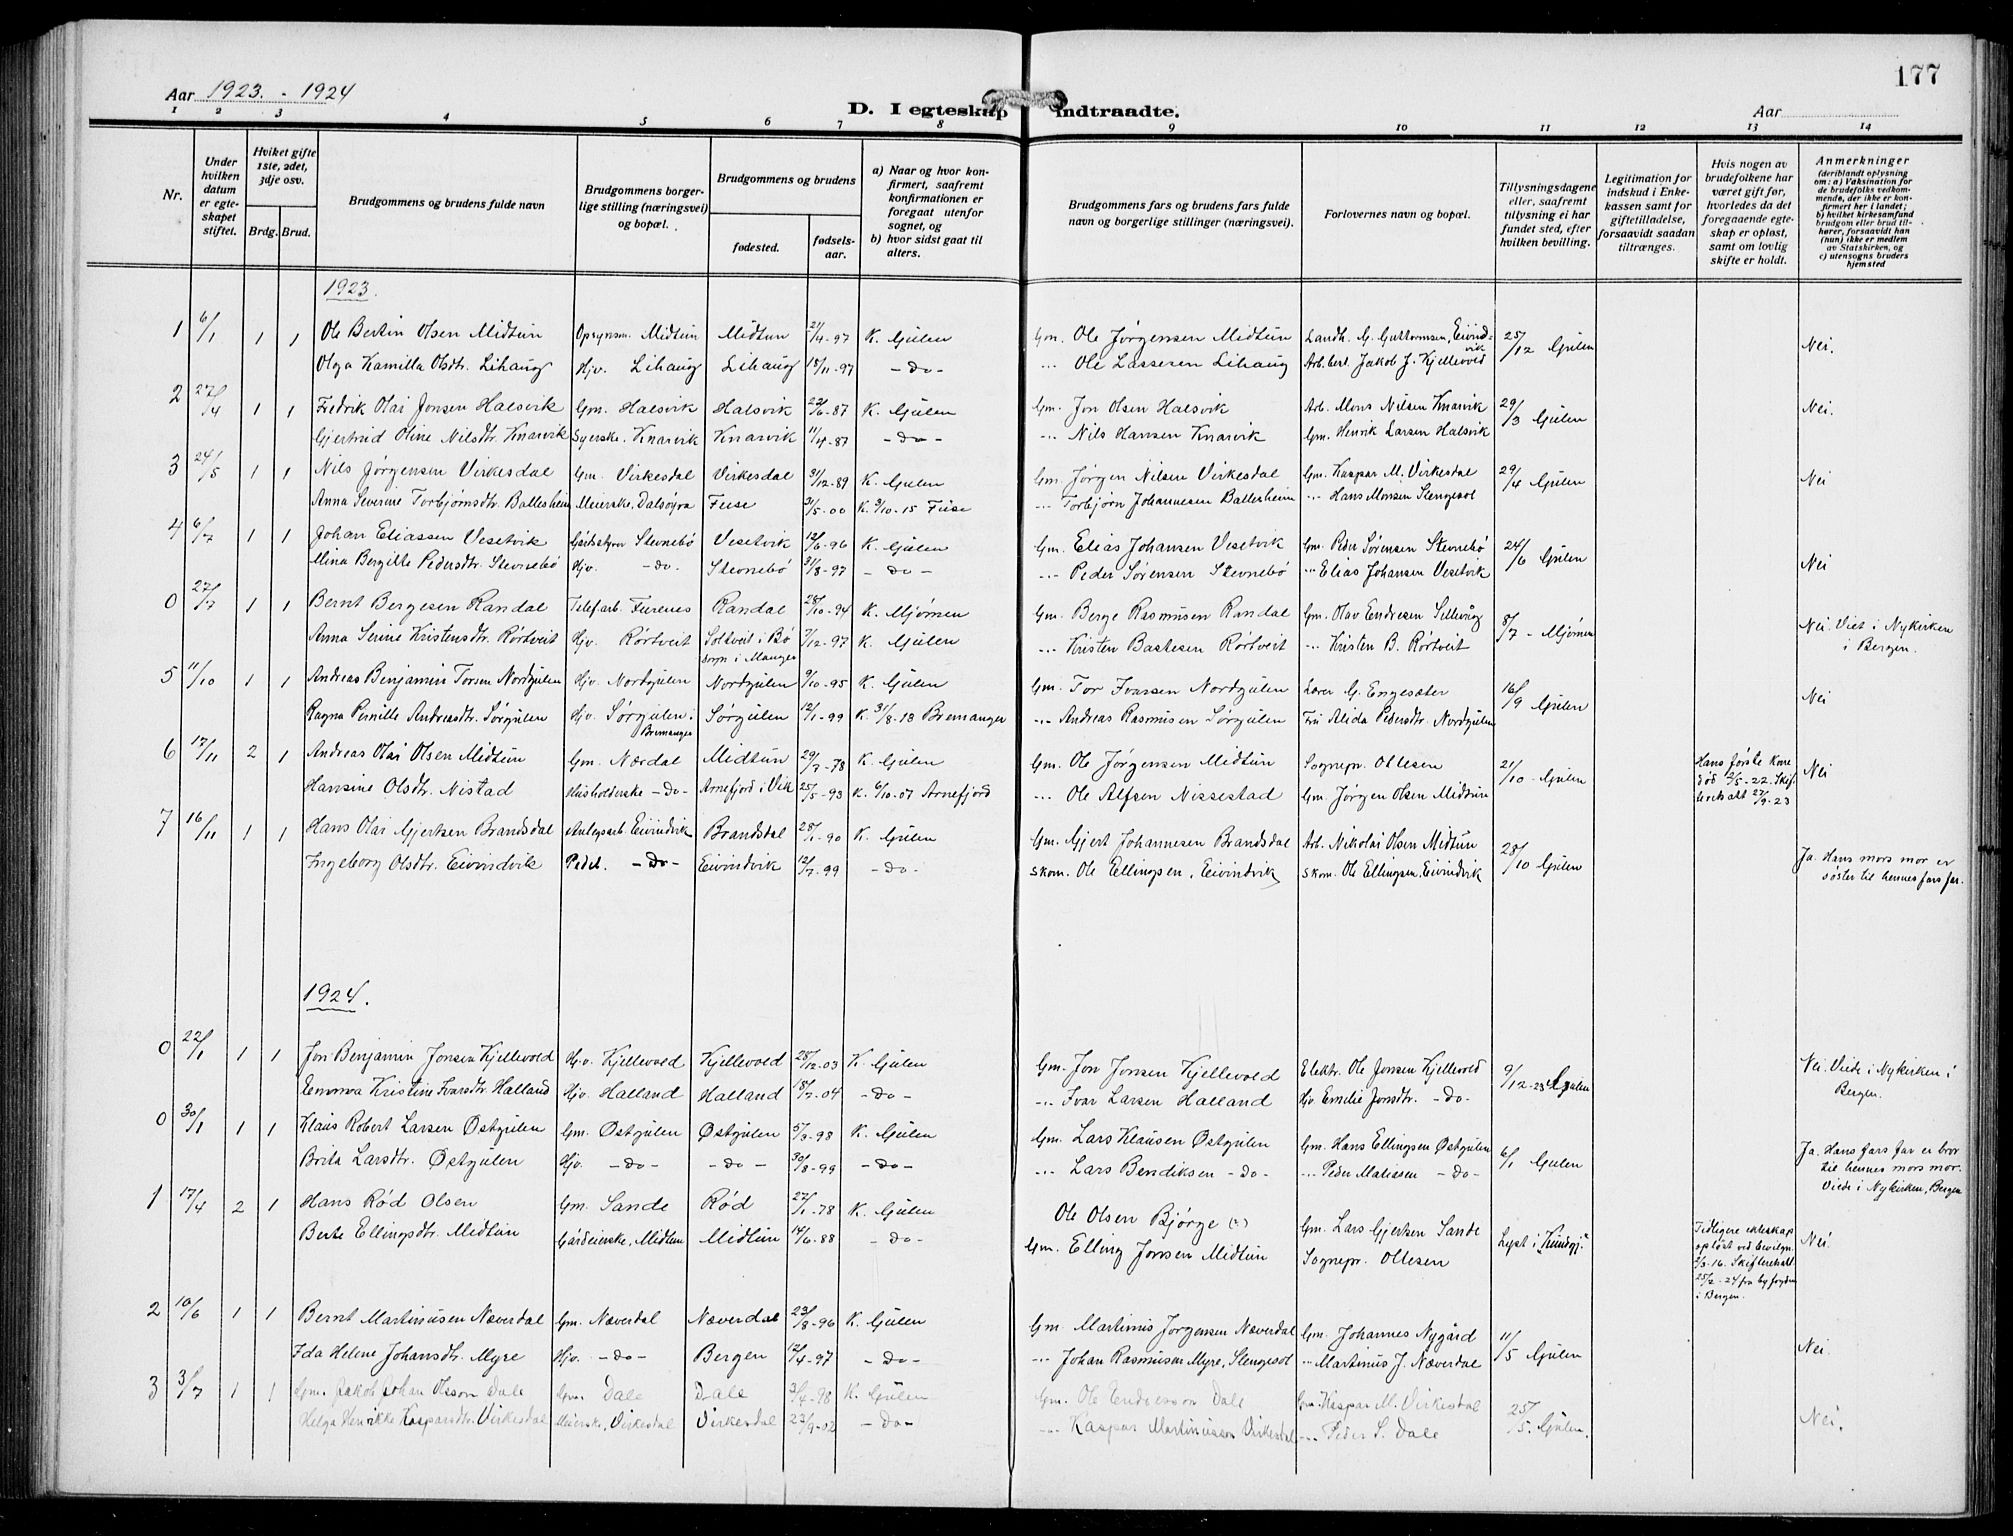 177
Aar 1923. - 1924
D. I egteskap indtraadte.
Aar
1 2 3 4 5 6 7 8 9 10 11 12 13 14
Nr.
Under hvilken datum er egteskapet stiftet.
Hviket gifte 1ste, 2det, 3dje osv.
Brdg. Brud.
Brudgommens og brudens fulde navn
Brudgommens borgerlige stilling (næringsvei) og bopæl.
Brudgommens og brudens
fødested.
fødselsaar.
a) Naar og hvor konfirmert, saafremt konfirmationen er foregaat utenfor sognet, og
b) hvor sidst gaat til alters.
Brudgommens fars og brudens fars fulde navn og borgerlige stillinger (næringsvei).
Forlovernes navn og bopæl.
Tillysningsdagene eller, saafremt tillysning ei har fundet sted, efter hvilken bevilling.
Legitimation for indskud i Enkekassen samt for giftetilladelse, forsaavidt saadan tiltrænges.
Hvis nogen av brudefolkene har været gift før, hvorledes da det foregaaende egteskap er opløst, samt om lovlig skifte er holdt.
Anmerkninger (deriblandt oplysning om: a) Vaksination for de brudefolks vedkommende, der ikke er konfirmert her i landet; b) hvilket kirkesamfund brudgom eller brud tilhører, forsaavidt han (hun) ikke er medlem av Statskirken, og c) utensogns bruders hjemsted
1923.
1 6/1 1 1 Ole Bertin Olsen Midtun Opsynsm. Midtun Midtun 21/4-97 K. Gulen Gm. Ole Jørgensen Midtun Landh. G. Guttormsen, Eivindvik 25/12 Gulen Nei.
Olga Kamilla Olsdtr. Lihaug Hjv. Lihaug Lihaug 18/11-97 - do - ... Ole Lassesen Lihaug Arb.best. Jakob J. Kjellevold
2 27/4 1 1 Fredrik Olai Jonsen Halsvik Gm. Halsvik Halsvik 22/6-87 K. Gulen Gm. Jon Olsen Halsvik Arb. Mons Nilsen Knarvik 29/3 Gulen Nei.
Gjertrud Oline Nilsdtr. Knarvik Syerske. Knarvik Knarvik 11/4-87 - do - ... Nils Hansen Knarvik Gm. Henrik Larsen Halsvik
3 24/5 1 1 Nils Jørgensen Virkesdal Gm. Virkesdal Virkesdal 31/12-89 K. Gulen Gm. Jørgen Nilsen Virkesdal Gm. Kaspar M. Virkesdal 29/4 Gulen Nei
Anna Severine Torbjørnsdtr. Ballesheim Meierske, Dalsøyra Fuse 31/5-00 K. 3/10-15 Fuse ... Torbjørn Johannesen Ballesheim ... Hans Monsen Stengesol
4 6/7 1 1 Johan Eliassen Vesetvik Gårdstyrer Stevnebø Vesetvik 12/6-96 K. Gulen Gm. Elias Johansen Vesetvik Gm. Peder Sørensen Stevnebø 24/6 Gulen Nei
Mina Bergitte Pedersdtr. Stevnebø Hjv. - do - Stevnebø 31/8-97 - do - ... Peder Sørensen Stevnebø ... Elias Johansen Vesetvik
0 27/7 1 1 Bernt Bergesen Randal Telefarb. Furenes Randal 28/10-94 K. Mjømen Gm. Berge Rasmusen Randal Gm. Olav Endresen Sellevåg 8/7 - Mjømen Nei. Viet i Nykirken i Bergen.
Anna Serine Kristensdtr. Rørtveit Hjv. Rørtveit Soltveit i Bø sogn i Manger 7/12-97 K. Gulen ... Kristen Bastesen Rørtveit ... Kristen B. Rørtveit
5 11/10 1 1 Andreas Benjamin Torsen Nordgulen Hjv. Nordgulen Nordgulen 9/10-95 K. Gulen Gm. Tor Ivarsen Nordgulen Lærer G. Engesæter 16/9 Gulen Nei
Ragna Pernille Andreasdtr. Sørgulen Hjv. Sørgulen i Bremanger Sørgulen 12/1-99 K. 31/8-13 Bremanger ... Andreas Rasmusen Sørgulen Fru Alida Pedersdtr. Nordgulen
6 17/11 2 1 Andreas Olai Olsen Midtun Gm. Nærdal Midtun 29/7-78 K. Gulen Gm. Ole Jørgensen Midtun Sognepr. Ottesen 21/10 - Gulen Hans første kone død 2/5-22. Skifteretsatt 27/9-23 Nei
Hansine Olsdtr. Nistad Husholderske - do - Arnefjord i Vik 25/5-93 K. 6/10-07 Arnefjord ... Ole Alfsen Nissestad Gm. Jørgen Olsen Midtun
7 16/11 1 1 Hans Olai Gjertsen Brandsdal Anlegsarb. Eivindvik Brandsdal 28/1-90 K. Gulen Gm. Gjert Johannesen Brandsdal Arb. Nikolai Olsen Midtun 28/10 Gulen Ja. Hans mors mor er søster til hennes fars far.
Ingeborg Olsdtr. Eivindvik - do - Eivindvik 12/7-99 - do - Skom. Ole Ellingsen, Eivindvik Skom. Ole Ellingsen, Eivindvik
1924.
0 22/1 1 1 Jon Benjamin Jonsen Kjellevold Hjv. Kjellevold Kjellevold 28/12-03 K. Gulen Gm. Jon Jonsen Kjellevold Elektr. Ole Jonsen Kjellevold 9/12-23 Gulen Nei. Viede i Nykirken i Bergen.
Emma Kristine Ivarsdtr. Halland Hjv. Halland Halland 18/7-04 - do - ... Ivar Larsen Halland Hjv. Emilie Jonsdtr. - do -
0 30/1 1 1 Klaus Robert Larsen Østgulen Gm. Østgulen Østgulen 5/3-98 K. Gulen Gm. Lars Klausen Østgulen Gm. Hans Ellingsen Østgulen 6/1 Gulen Ja. Hans fars far er bror til hennes mors mor. Viede i Nykirken, Bergen
Brita Larsdtr. Østgulen Hjv. - do - - do - 30/8-99 - do - ... Lars Bendiksen - do - ... Peder Matissen - do -
1 17/4 2 1 Hans Rød Olsen Gm. Sande Rød 27/1-78 K. Gulen Ole Olsen Bjørge (?) Gm. Lars Gjertsen Sande Lyst i "Kundgj." Tidligere ekteskap opløst ved bevilgn. 2/3-16. Skifteretsatt 25/2-24 fra byfogden i Bergen. Nei.
Berte Ellingsdtr. Midtun Gårdeierske, Midtun Midtun 14/6-88 - do - Gm. Elling Jonsen Midtun Sognepr. Ottesen
2 10/6 1 1 Bernt Martinusen Næverdal Gm. Næverdal Næverdal 23/8-96 K. Gulen Gm. Martinus Jørgensen Næverdal Gm. Johannes Nygård 11/5 Gulen Nei.
Ida Helene Johansdtr. Myre Hjv. - do - Bergen 12/4-97 - do - ... Johan Rasmusen Myre, Stengesol ... Martinus J. Næverdal
3 3/7 1 1 Gm. Jakob Johan Olsson Dale Gm. Dale Dale 3/4-98 K. Gulen Gm. Ole Endresson Dale Gm. Kaspar M. Virkesdal 25/5. Gulen. Nei.
Helga Henrikke Kasparsdtr. Virkesdal Meierske, Virkesdal Virkesdal 23/9-02 - do - ... Kaspar Martinusson Virkesdal ... Peder S. Dale